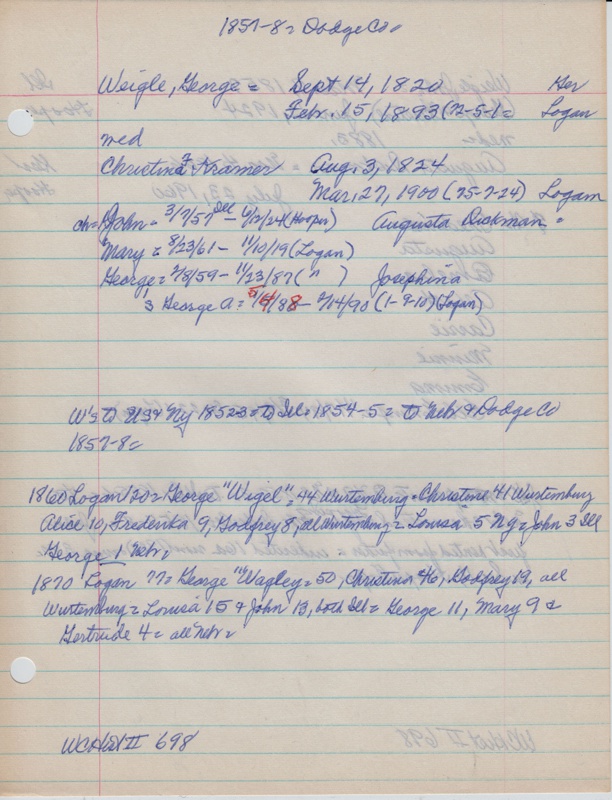 1857-8 = Dodge Co
Weigle, George = Sept 14, 1820 Her
Febr. 15, 1893 (72-5-1 = Logan
med
Christina F Kramer Aug. 3, 1824
Mar. 27, 1900 (75-7-24) Logan
ch = John = 3/7/57 Ill - 6/2/24 (Hooper) Augusta Dickman =
Mary = 8/23/61 - 11/10/19 (Logan)
George = 2/8/59 - 11/23/87 ( " ) Josephina
3 George A = 5/4/88 - 2/14/90 (1-9-10) (Logan)
W's to USA & NY 1852 = to Ill = 1854-5 = to Nebr & Dodge Co
1857-8 =
1860 Logan 120 = George "Wigel" = 44 Wurtemburg = Christine 41 Wurtemburg
Alice 10, Frederika 9, Godfrey 8, all Wurtemburg = Louisa 5 NY = John 3 Ill
George 1 Nebr =
1870 Logan 77 = George "Wagley = 50, Christina 46, Godfrey 19, all
Wurtemburg = Louisa 15 & John 13, both Ill = George 11, Mary 9 &
Gertrude 4 = all Nebr =
WCHist II 698